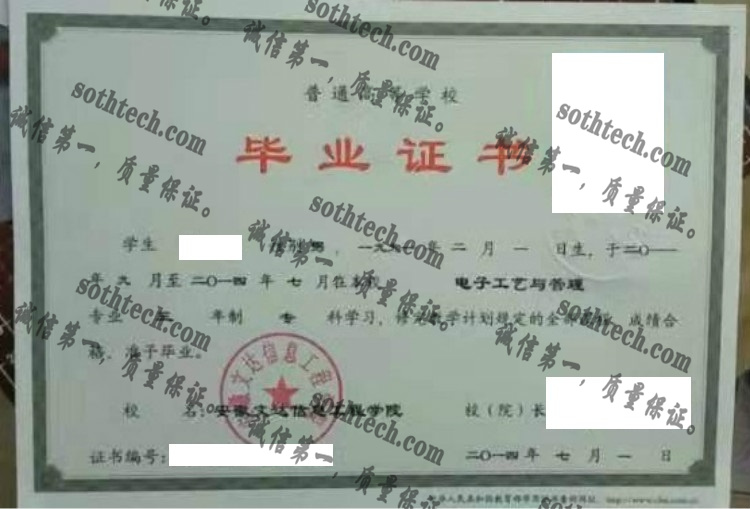 普通高等学校
毕业证书
学生 性别男，一九九〇年二月一日生，于二〇一一
年九月至二〇一四年七月在本校 电子工艺与管理
专业 三 年制 专 科学习，修完教学计划规定的全部课程，成绩合
格，准予毕业。
校 名：安徽文达信息工程学院 校（院）长
证书编号： 二〇一四年 七 月 一 日
sothtech.com
诚信第一，质量保证。
sothtech.com
诚信第一，质量保证。
sothtech.com
诚信第一，质量保证。
sothtech.com
诚信第一，质量保证。
sothtech.com
诚信第一，质量保证。
sothtech.com
诚信第一，质量保证。
sothtech.com
诚信第一，质量保证。
sothtech.com
诚信第一，质量保证。